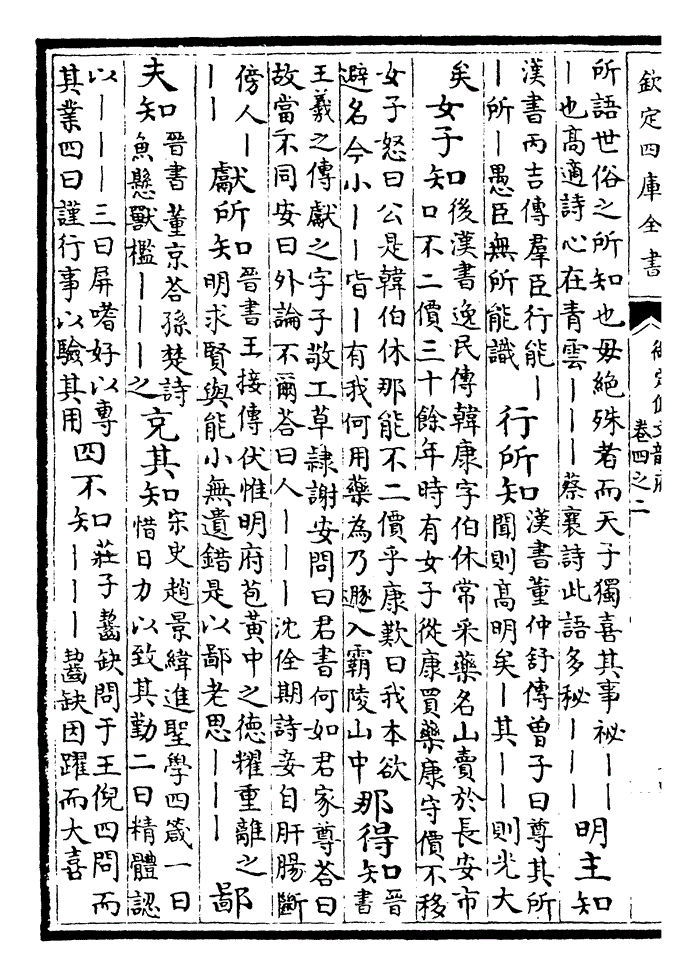 欽定四庫全書
御定佩文韻府
卷四之二
所語世俗之所知也毋絶殊者而天子獨喜其事祕——
—也髙適詩心在青雲———蔡襄詩此語多秘———
明主知
漢書丙吉傳羣臣行能—
—所—愚臣無所能識
行所知
漢書董仲舒傳曽子曰尊其所
聞則髙明矣—其——則光大
矣
女子知
後漢書逸民傳韓康字伯休常采藥名山賣於長安市
口不二價三十餘年時有女子從康買藥康守價不移
女子怒曰公是韓伯休那能不二價乎康歎曰我本欲
避名今小——皆—有我何用藥為乃遯入霸陵山中
那得知
晉
書
王羲之傳獻之字子敬工草隷謝安問曰君書何如君家尊荅曰
故當不同安曰外論不爾荅曰人———沈佺期詩妾自肝腸斷
傍人—
——
獻所知
晉書王接傳伏惟明府苞黃中之德耀重離之
明求賢與能小無遺錯是以鄙老思———
鄙
夫知
晉書董京荅孫楚詩
魚懸獸檻———之
克其知
宋史趙景緯進聖學四箴一曰
惜日力以致其勤二曰精體認
以———三曰屏嗜好以專
其業四曰謹行事以驗其用
四不知
莊子齧缺問于王倪四問而
———齧缺因躍而大喜